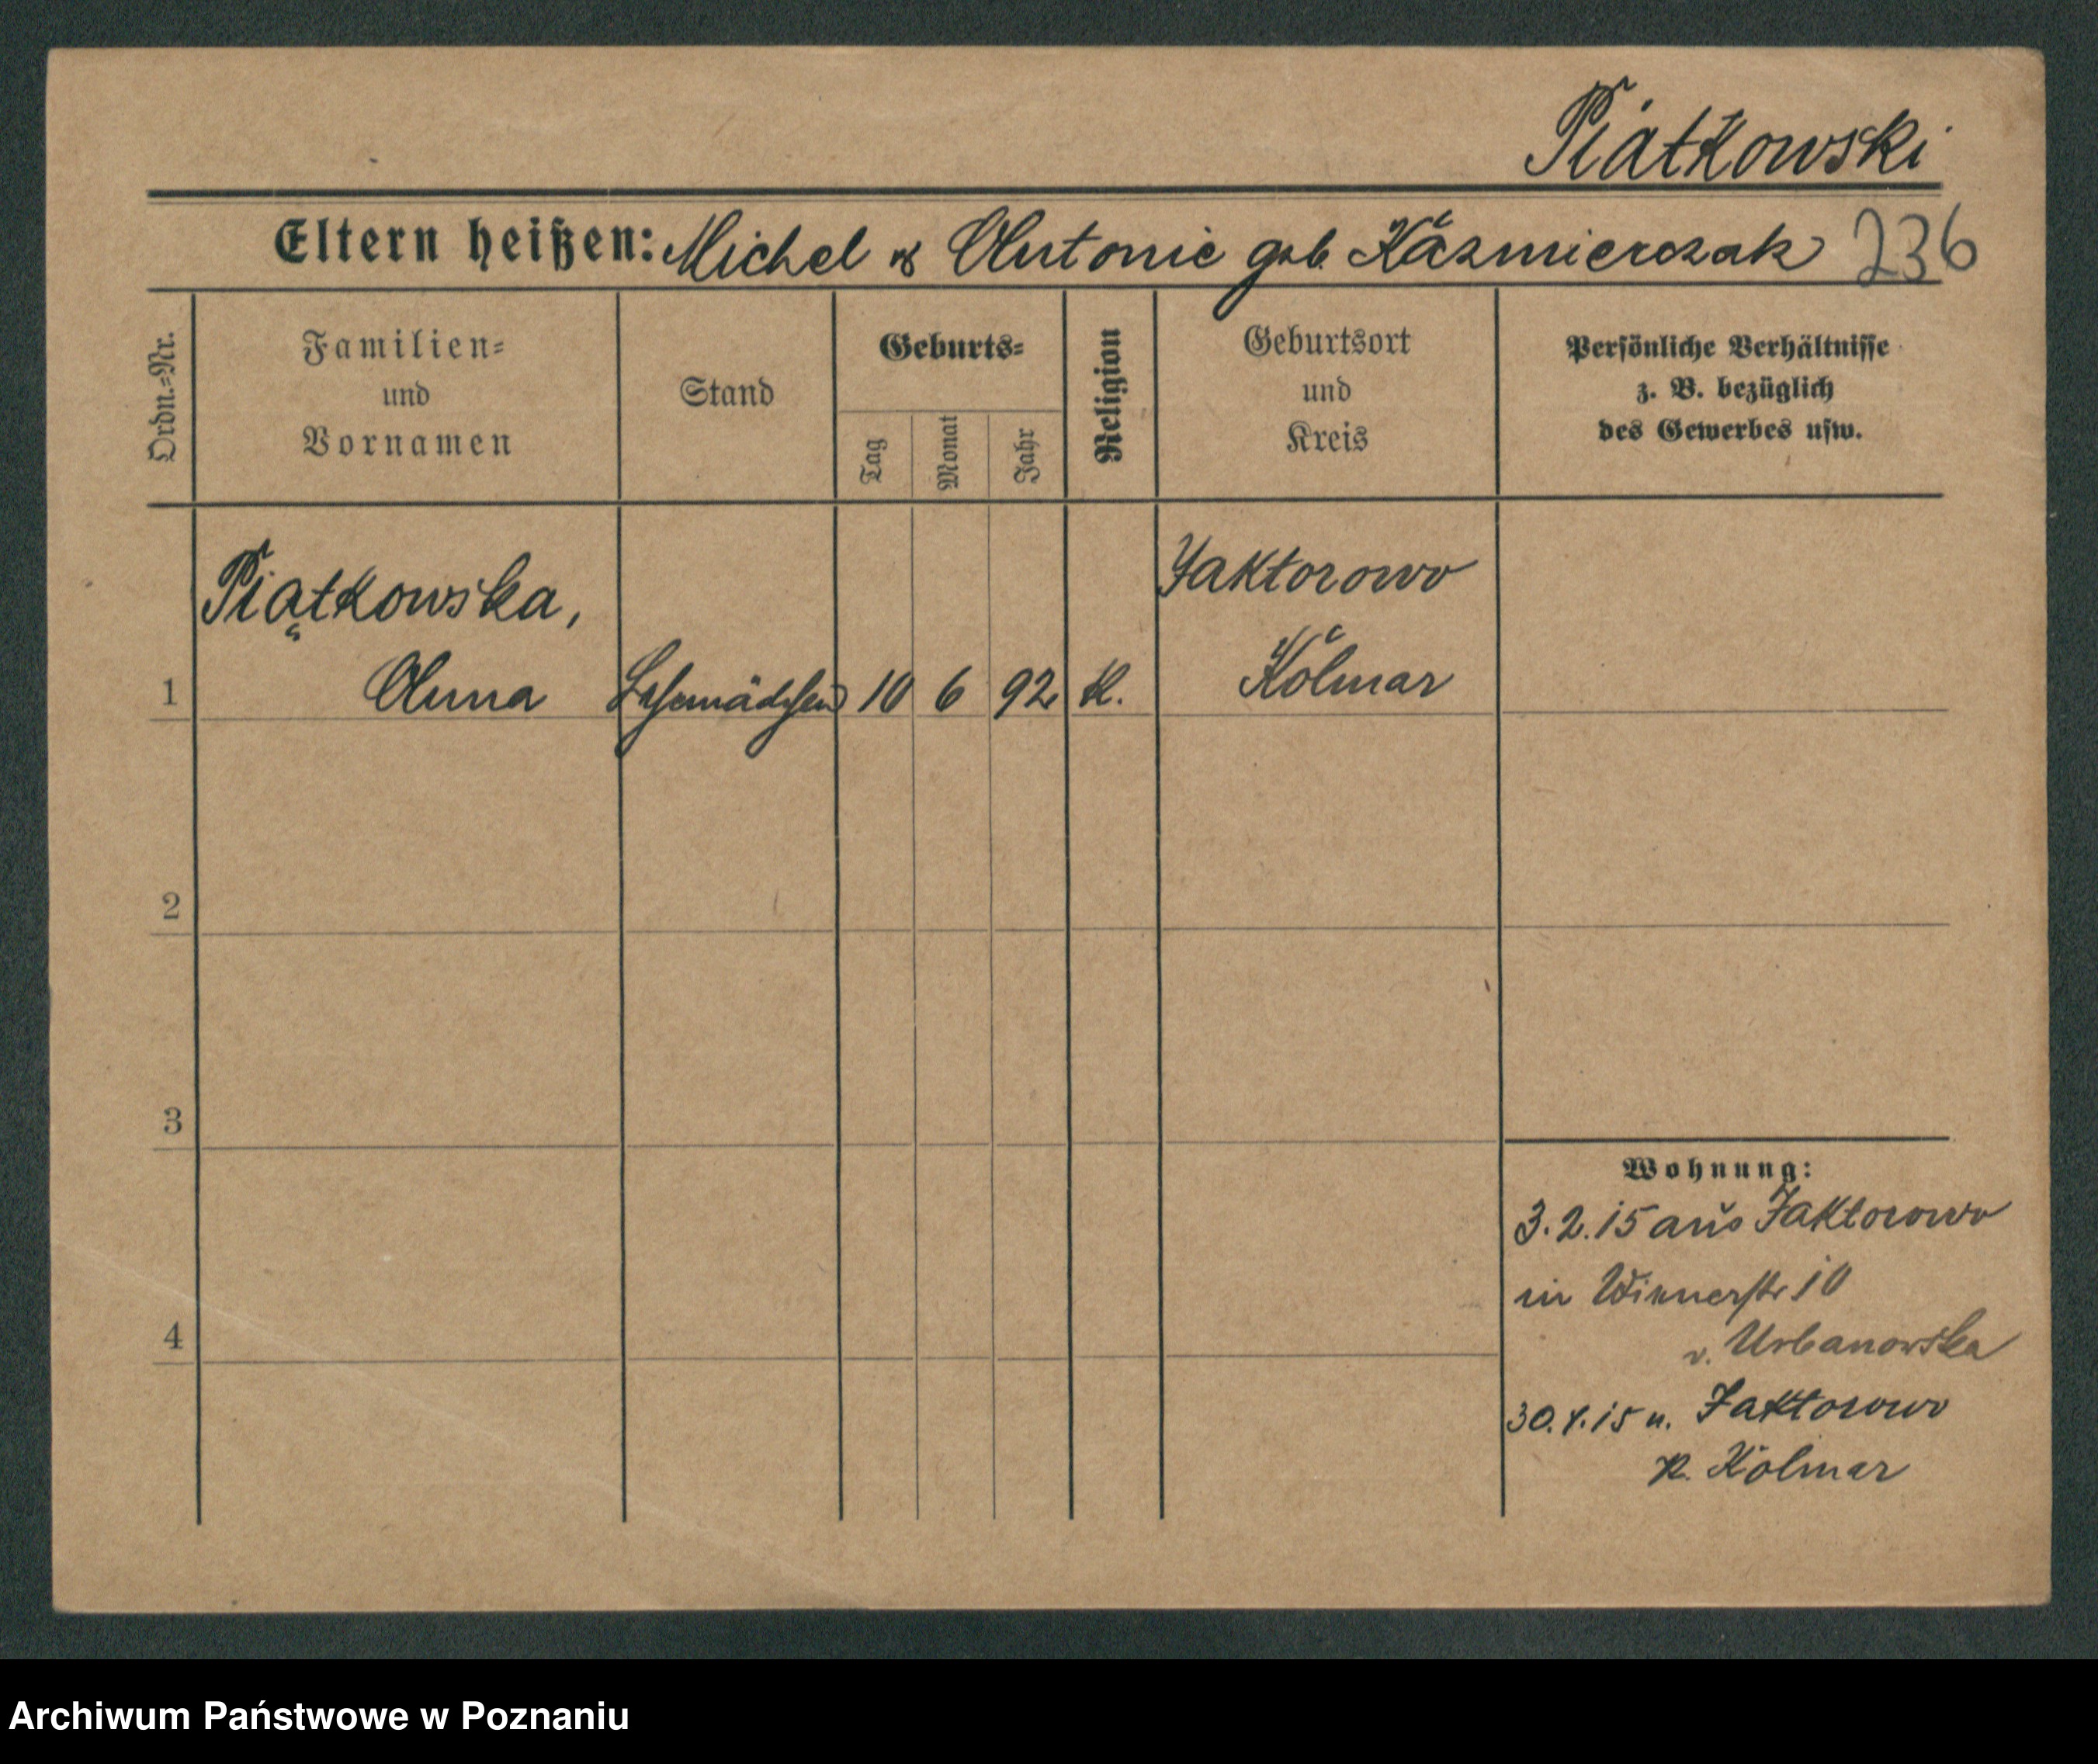 Piątkowski
Eltern heißen: Michel & Antonie geb. Kazmierczak 236
Ordn.=Nr.
Familien=
und
Vornamen
Stand
Geburts=
Tag
Monat
Jahr
Religion
Geburtsort
und
Kreis
Persönliche Verhältnisse
z. B. bezüglich
des Gewerbes usw.
Piątkowska, Jaktorowo
1 Anna Lehrmädchen 10 6 92 K. Kolmar
2
3
4
Wohnung:
3.2.15 aus Jaktorowo
in Wienerstr 10
v. Urbanowska
30.4.15 n. Jaktorowo
K. Kolmar
Archiwum Państwowe w Poznaniu